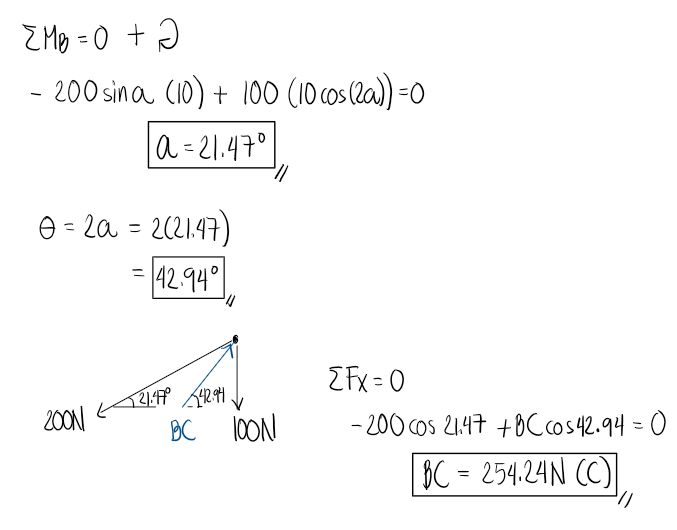 ΣMB = 0 + ↻
- 200 sin a (10) + 100 (10 cos(2a)) = 0
a = 21.47° //
θ = 2a = 2(21.47)
= 42.94° //
21.47°
42.94
200N
BC
100N
ΣFx = 0
-200 cos 21.47 + BC cos 42.94 = 0
BC = 254.24N (C) //